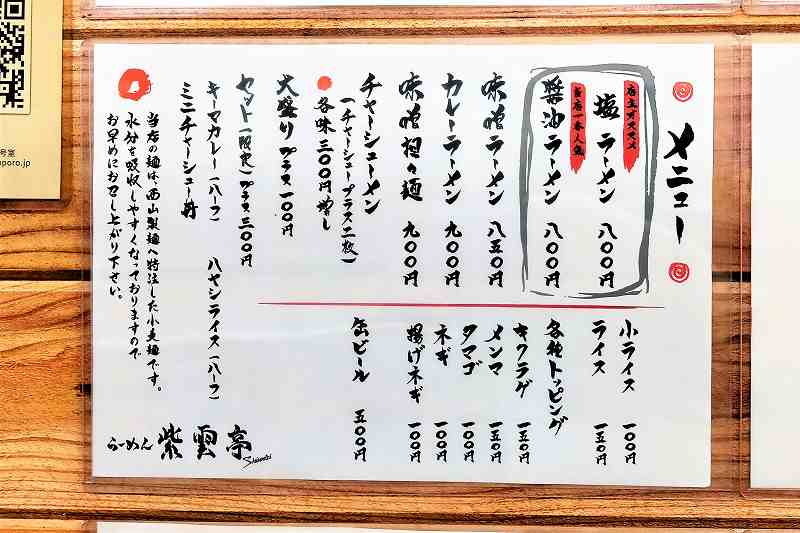 メニュー
店主オススメ
塩ラーメン 八〇〇円
当店一番人気
醤油ラーメン 八〇〇円
味噌ラーメン 八五〇円
カレーラーメン 九〇〇円
味噌担々麺 九〇〇円
チャーシューメン
(チャーシュープラス二枚)
各味 三〇〇円増し
大盛り プラス一〇〇円
セット(限定)プラス三〇〇円
キーマカレー(ハーフ) ハヤシライス(ハーフ)
ミニチャーシュー丼
小ライス 一〇〇円
ライス 一五〇円
各種トッピング
キクラゲ 一五〇円
メンマ 一五〇円
タマゴ 一〇〇円
ネギ 一〇〇円
揚げネギ 一〇〇円
缶ビール 五〇〇円
当店の麺は、西山製麺へ特注した小麦麺です。
水分を吸収しやすくなっておりますので
お早めにお召し上がり下さい。
らーめん 紫雲亭
号室
poro.jp